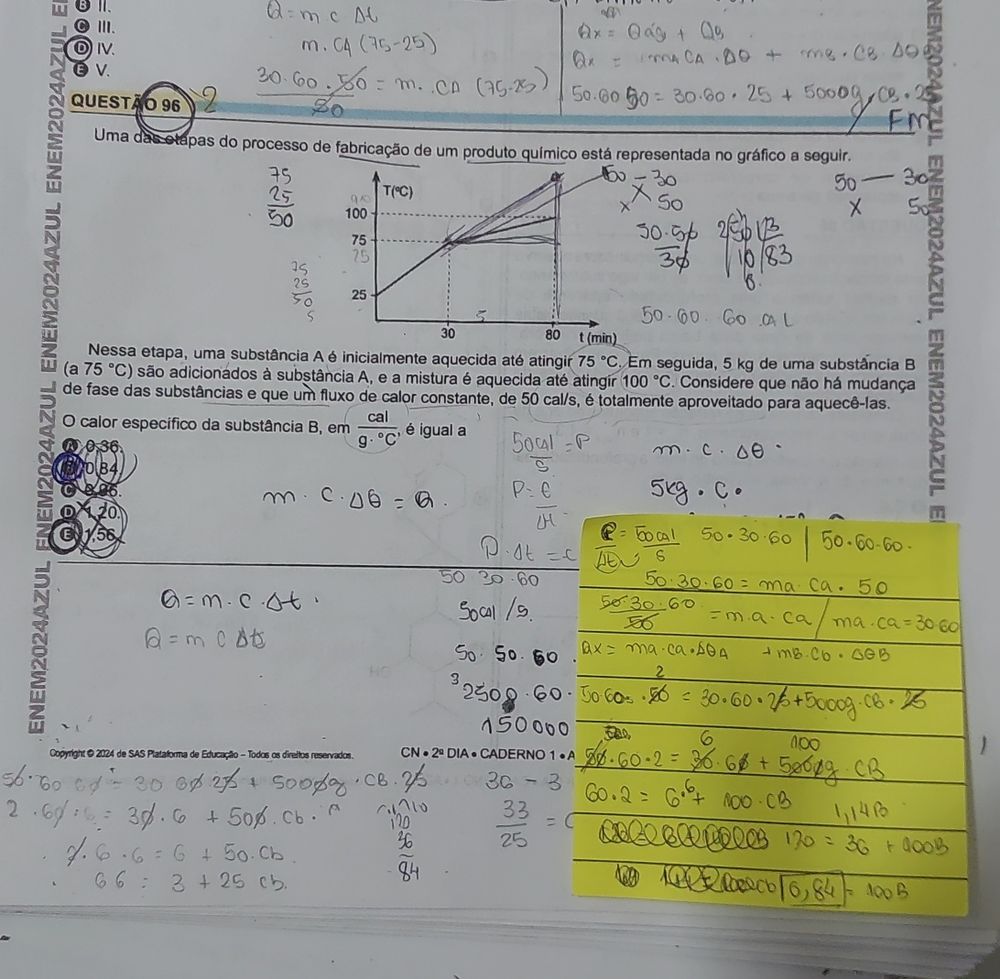 B II.
C III.
D IV.
E V.
Q = m c Δt
m. CA (75-25)
30.60.50 = m. CA (75-25)
50
Qx = QA + QB
Qx = mA CA . Δθ + mB . CB . Δθ
50.60 50 = 30.60 . 25 + 5000g . CB . 25
FM
QUESTÃO 96
2
Uma das etapas do processo de fabricação de um produto químico está representada no gráfico a seguir.
75
25
50
75
25
50
5
T(°C)
100
75
25
25
30
80
t (min)
5
50 – 30
x 50
50.50
30
250
83
50 — 30
x 50
50.60.60 cal
Nessa etapa, uma substância A é inicialmente aquecida até atingir 75 °C. Em seguida, 5 kg de uma substância B
(a 75 °C) são adicionados à substância A, e a mistura é aquecida até atingir 100 °C. Considere que não há mudança
de fase das substâncias e que um fluxo de calor constante, de 50 cal/s, é totalmente aproveitado para aquecê-las.
O calor específico da substância B, em cal/g·°C, é igual a
A 0,36.
B 0,84.
C 0,96.
D 1,20.
E 1,56.
m . c . Δθ = Q.
50cal = P
s
P = E
Δt
P. Δt = C
m . c . Δθ .
5kg . c .
Q = m . c . Δt .
Q = m c Δt
50 30.60
50cal /s.
50. 50. 60
3
2500.60.
150000
P = 50cal
Δt s
50.30.60 | 50.60.60.
50.30.60 = ma . ca . 50
50.30.60 = m.a. ca / ma . ca = 30.60
50
Qx = ma . ca . ΔθA + mB . Cb . ΔθB
2
50 60 . 50 = 30.60.25 + 5000g . CB . 25
6 100
50.60.2 = 30.60 + 5000g . CB
60.2 = 6.6 + 100 . CB
1,14B
120 = 36 + 100B
0,84 = 100B
Copyright © 2024 de SAS Plataforma de Educação – Todos os direitos reservados.
CN • 2ª DIA • CADERNO 1 • A
50.60 60 = 30 60 25 + 5000g . CB . 25
2 . 60 . 6 = 30 . 6 + 500 . Cb .
2 . 6 . 6 = 6 + 50 . Cb.
66 = 3 + 25 cb.
120
36
84
36 – 3
33
25
= C
ENEM2024AZUL ENEM2024AZUL ENEM2024AZUL ENEM2024AZUL
ENEM2024AZUL ENEM2024AZUL ENEM2024AZUL